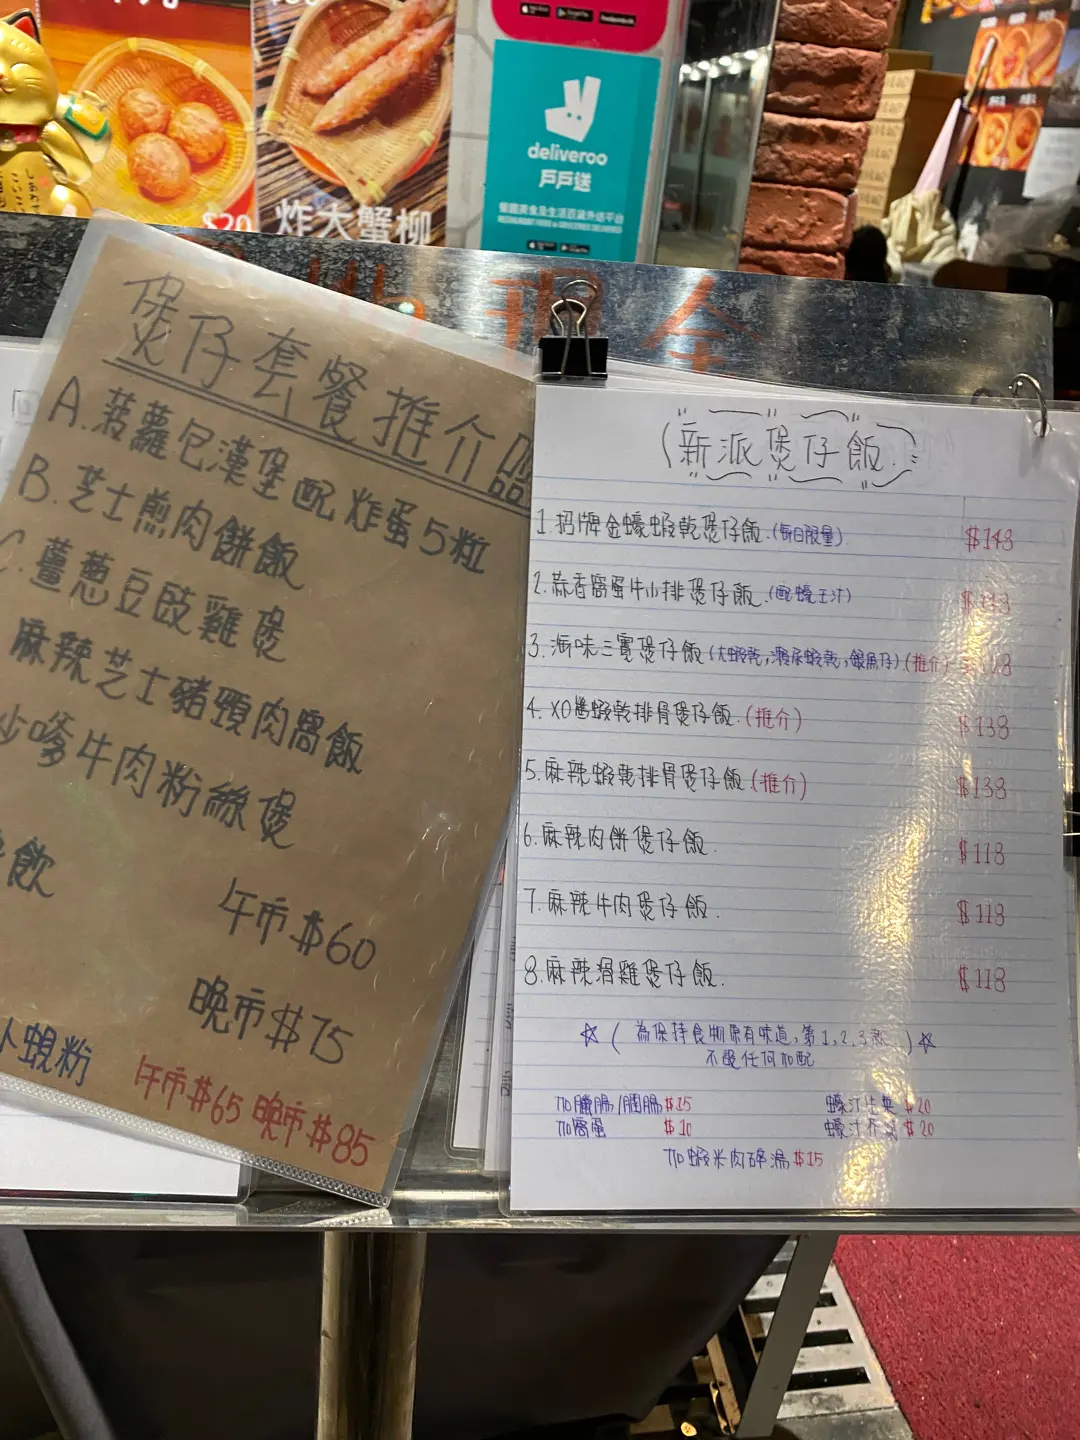 $20
炸大蟹柳
deliveroo
戶戶送
餐廳美食及生活百貨外送平台
RESTAURANT FOOD & GROCERIES DELIVERED
現金
煲仔套餐推介
A.菠蘿包漢堡配炸蛋5粒
B.芝士煎肉餅飯
C.薑蔥豆豉雞煲
麻辣芝士豬頸肉窩飯
沙嗲牛肉粉絲煲
飲
午市$60
晚市$75
小蜆粉
午市$65 晚市$85
(新派煲仔飯)
1.招牌金蠔蝦乾煲仔飯.(每日限量) $148
2.蒜香窩蛋牛小排煲仔飯.(配蠔王汁)
3.海味三寶煲仔飯(大蝦乾,瀨尿蝦乾,銀魚仔)(推介)
4.XO醬蝦乾排骨煲仔飯.(推介) $138
5.麻辣蝦乾排骨煲仔飯(推介) $138
6.麻辣肉餅煲仔飯. $118
7.麻辣牛肉煲仔飯. $118
8.麻辣滑雞煲仔飯. $118
☆(為保持食物原有味道,第1,2,3款)☆
不設任何加配
加臘腸/膶腸$15 蠔汁生菜$20
加窩蛋 $10 蠔汁芥蘭$20
加蝦米肉碎湯$15